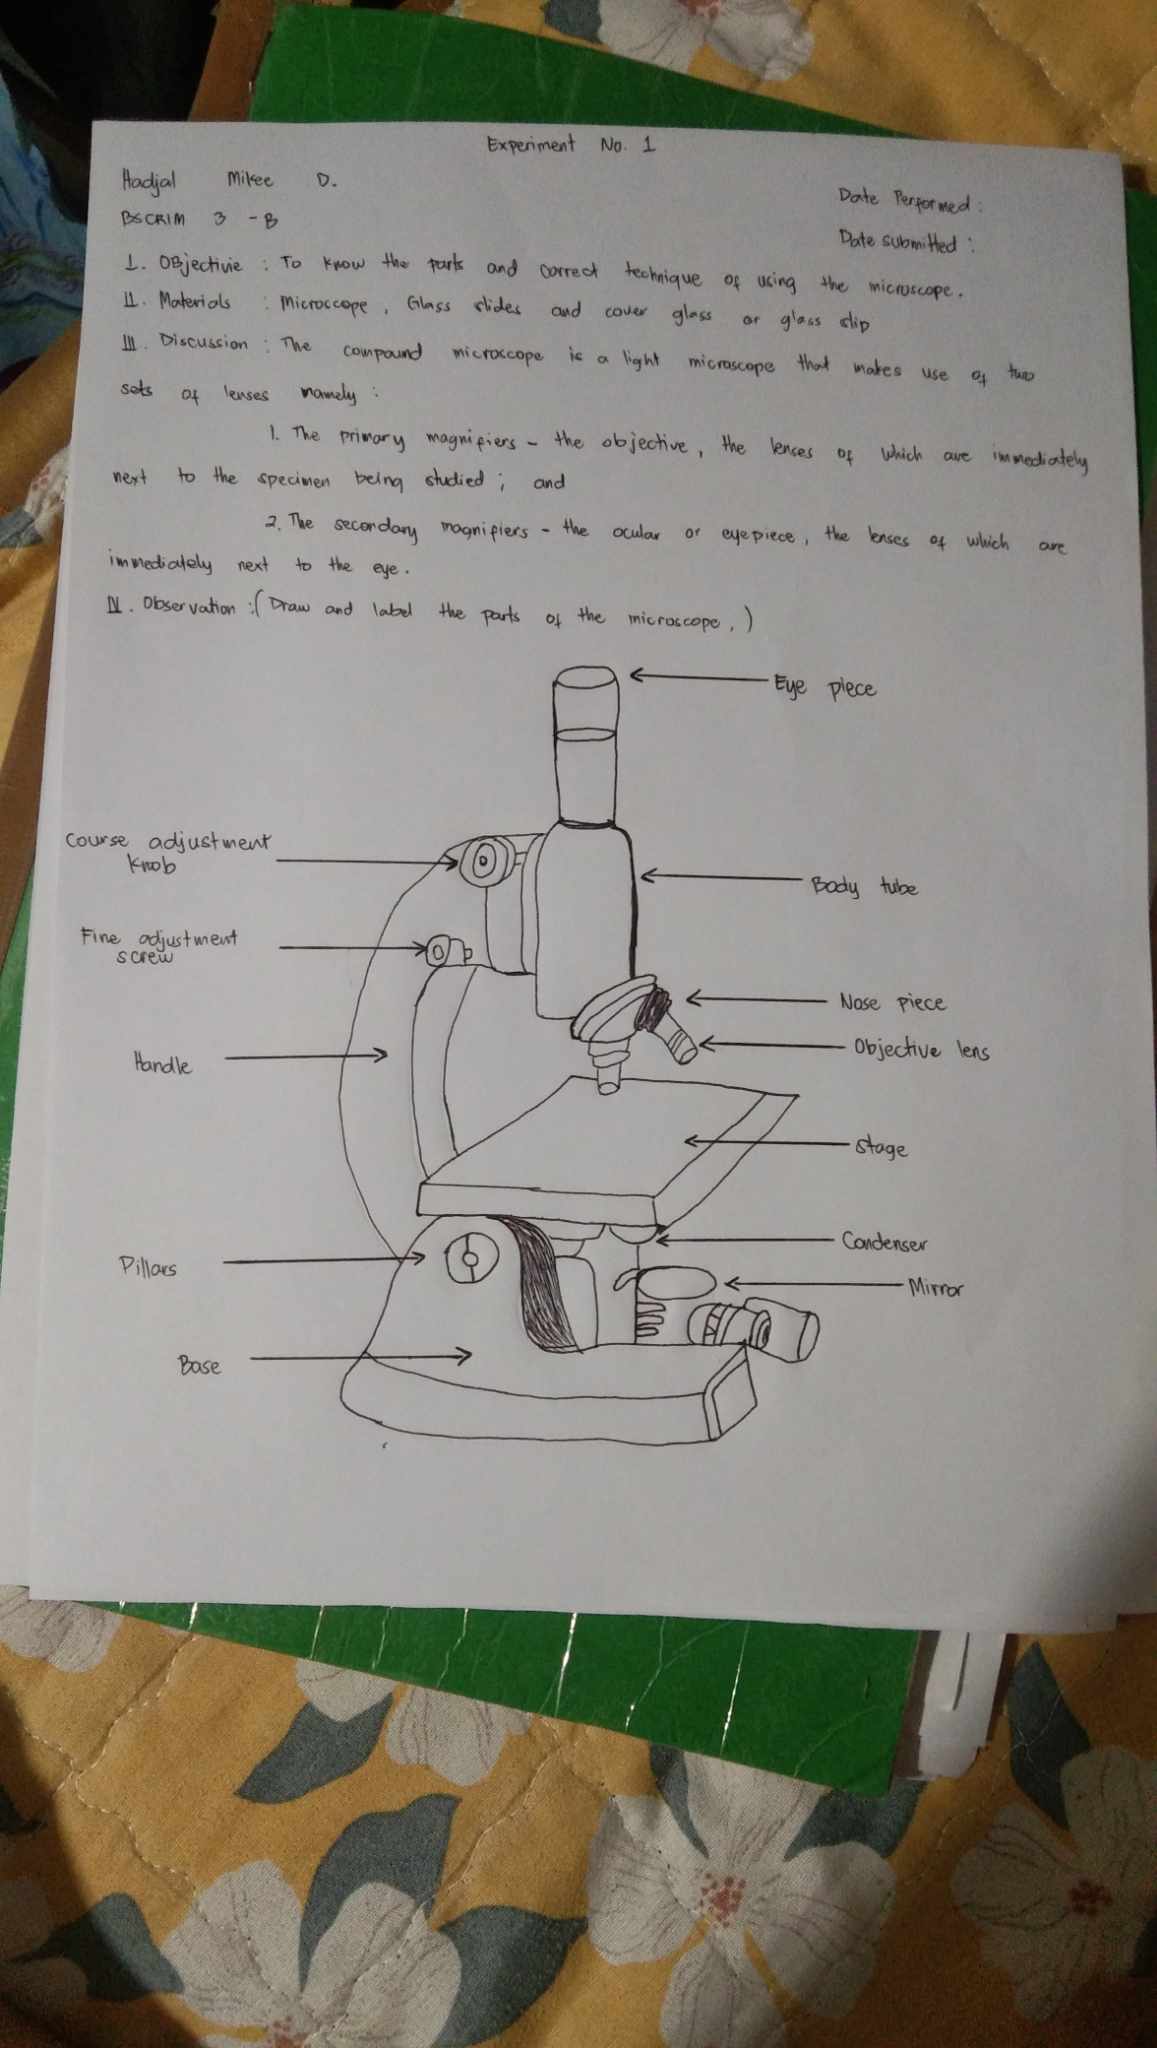 Experiment No. 1
Hadjal Mikee D.
Date Performed :
BSCRIM 3 - B
Date submitted :
I. Objectivie : To know the parts and correct technique of using the microscope.
II. Materials : Microscope, Glass slides and cover glass or glass slip
III. Discussion : The compound microscope is a light microscope that makes use of two
sets of lenses namely :
1. The primary magnifiers - the objective, the lenses of which are immediately
next to the specimen being studied ; and
2. The secondary magnifiers - the ocular or eyepiece, the lenses of which are
immediately next to the eye.
IV. Observation :( Draw and label the parts of the microscope. )
Eye piece
Course adjustment
knob
Body tube
Fine adjustment
screw
Nose piece
Objective lens
Handle
Stage
Condenser
Pillars
Mirror
Base